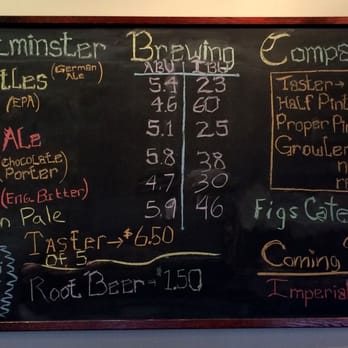 lminster Brewing Compa
tles (German Ale) ABV IBU
5.4 23
(EPA) 4.6 60
Ale 5.1 25
chocolate Porter) 5.8 38
(Eng. Bitter) 4.7 30
n Pale 5.9 46
Taster → $6.50
of 5
Root Beer → $1.50
Taster →
Half Pint
Proper Pin
Growler
Figs Cate
Coming
Imperial